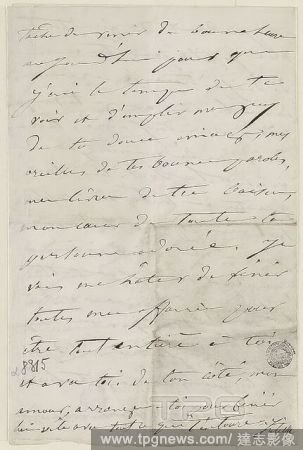 tâche de venir de bonne heure
aujourd'hui pour que
j'aie le temps de te
voir et d'emplir mes yeux
de ta douce image, mes
oreilles de tes bonnes paroles,
mes lèvres de tes baisers,
mon cœur de toute ta
personne adorée. Je
vais me hâter de finir
toutes mes affaires pour
être tout entière à toi
et avec toi. De ton côté, mon
amour, arrange-toi pour finir
vite avec tout ce qui
8815
TPG
www.tpgnews.com / 達志影像